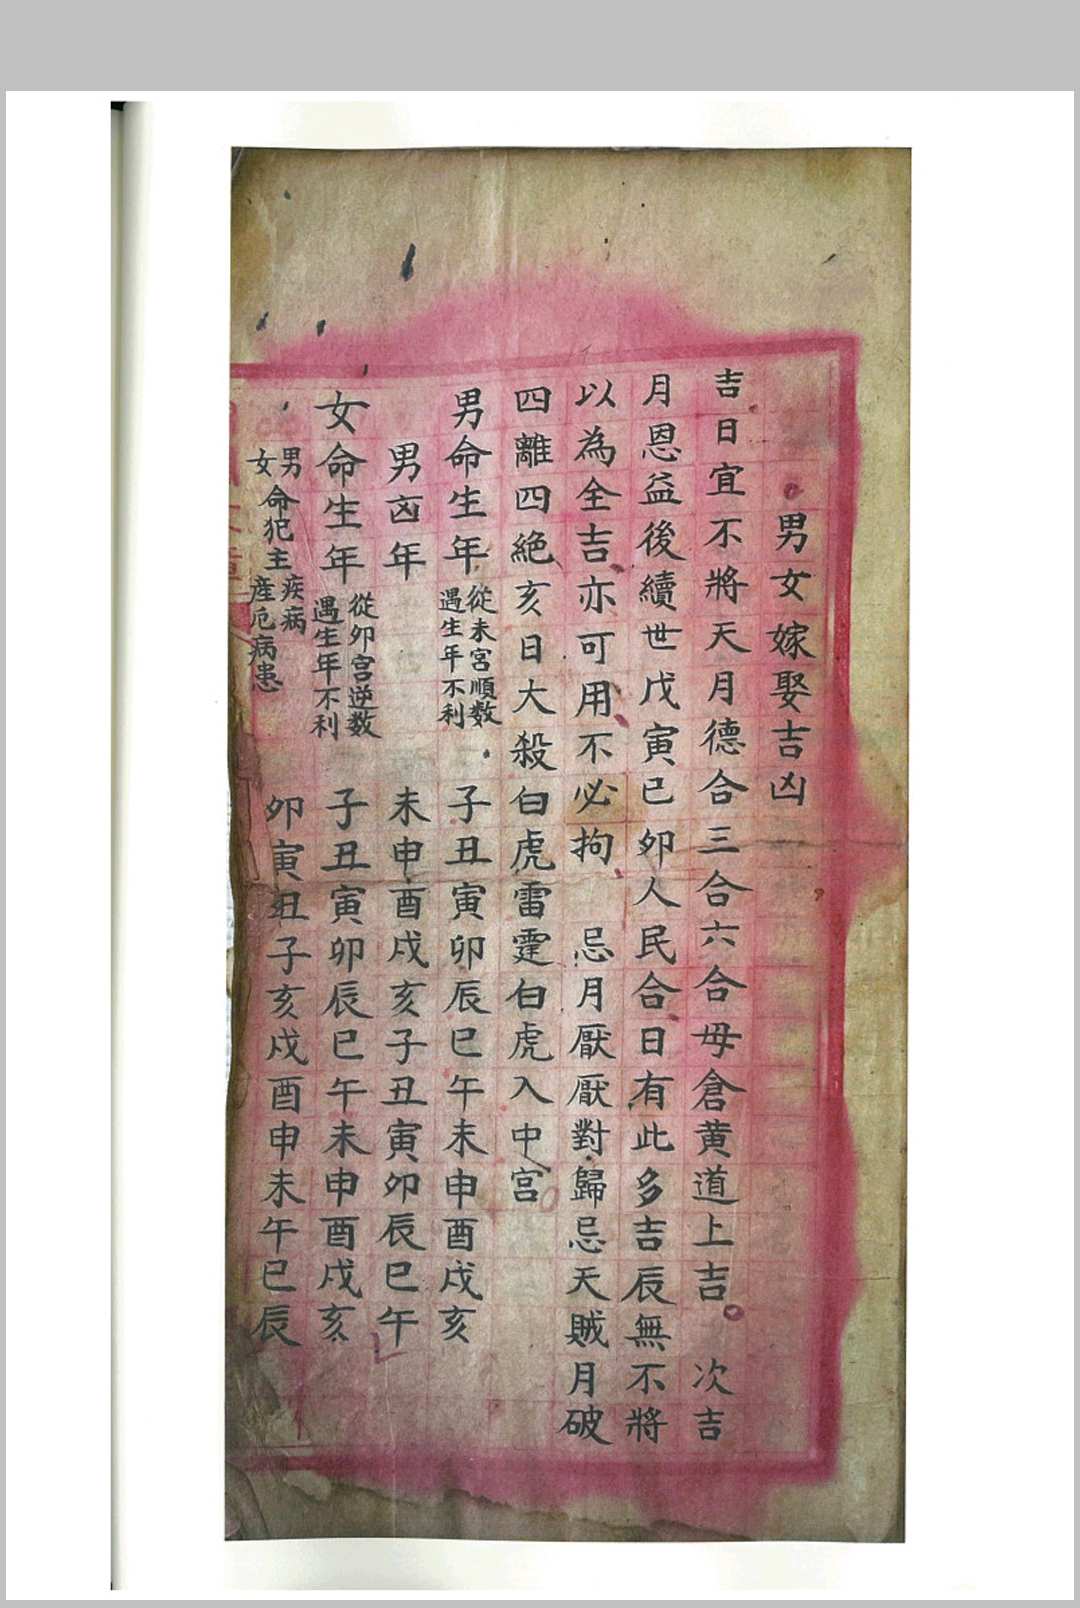 男女嫁娶吉凶
吉日宜不將天月德合三合六合母倉黄道上吉。次吉
月恩益後續世戊寅已卯人民合日有此多吉辰無不將
以為全吉亦可用不必拘　忌月厭厭對歸忌天賊月破
四離四絕亥日大殺白虎雷霆白虎入中宫
男命生年 從未宮順数 遇生年不利 子丑寅卯辰巳午未申酉戌亥
男凶年 未申酉戌亥子丑寅卯辰巳午
女命生年 從卯宫逆数 遇生年不利 子丑寅卯辰巳午未申酉戌亥
男女命犯主疾病産厄病患 卯寅丑子亥戌酉申未午巳辰